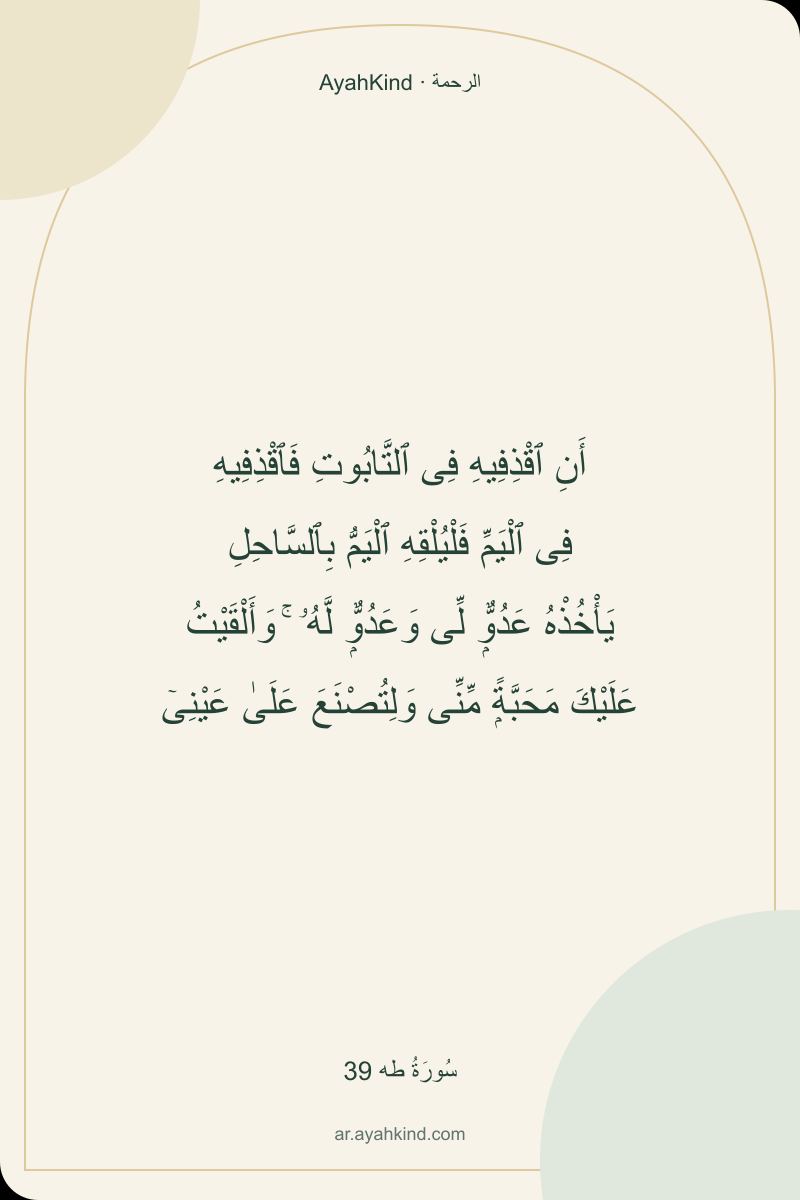 AyahKind · الرحمة
أَنِ ٱقْذِفِيهِ فِى ٱلتَّابُوتِ فَٱقْذِفِيهِ
فِى ٱلْيَمِّ فَلْيُلْقِهِ ٱلْيَمُّ بِٱلسَّاحِلِ
يَأْخُذْهُ عَدُوٌّۭ لِّى وَعَدُوٌّۭ لَّهُۥ ۚ وَأَلْقَيْتُ
عَلَيْكَ مَحَبَّةًۭ مِّنِّى وَلِتُصْنَعَ عَلَىٰ عَيْنِىٓ
سُورَةُ طه 39
ar.ayahkind.com